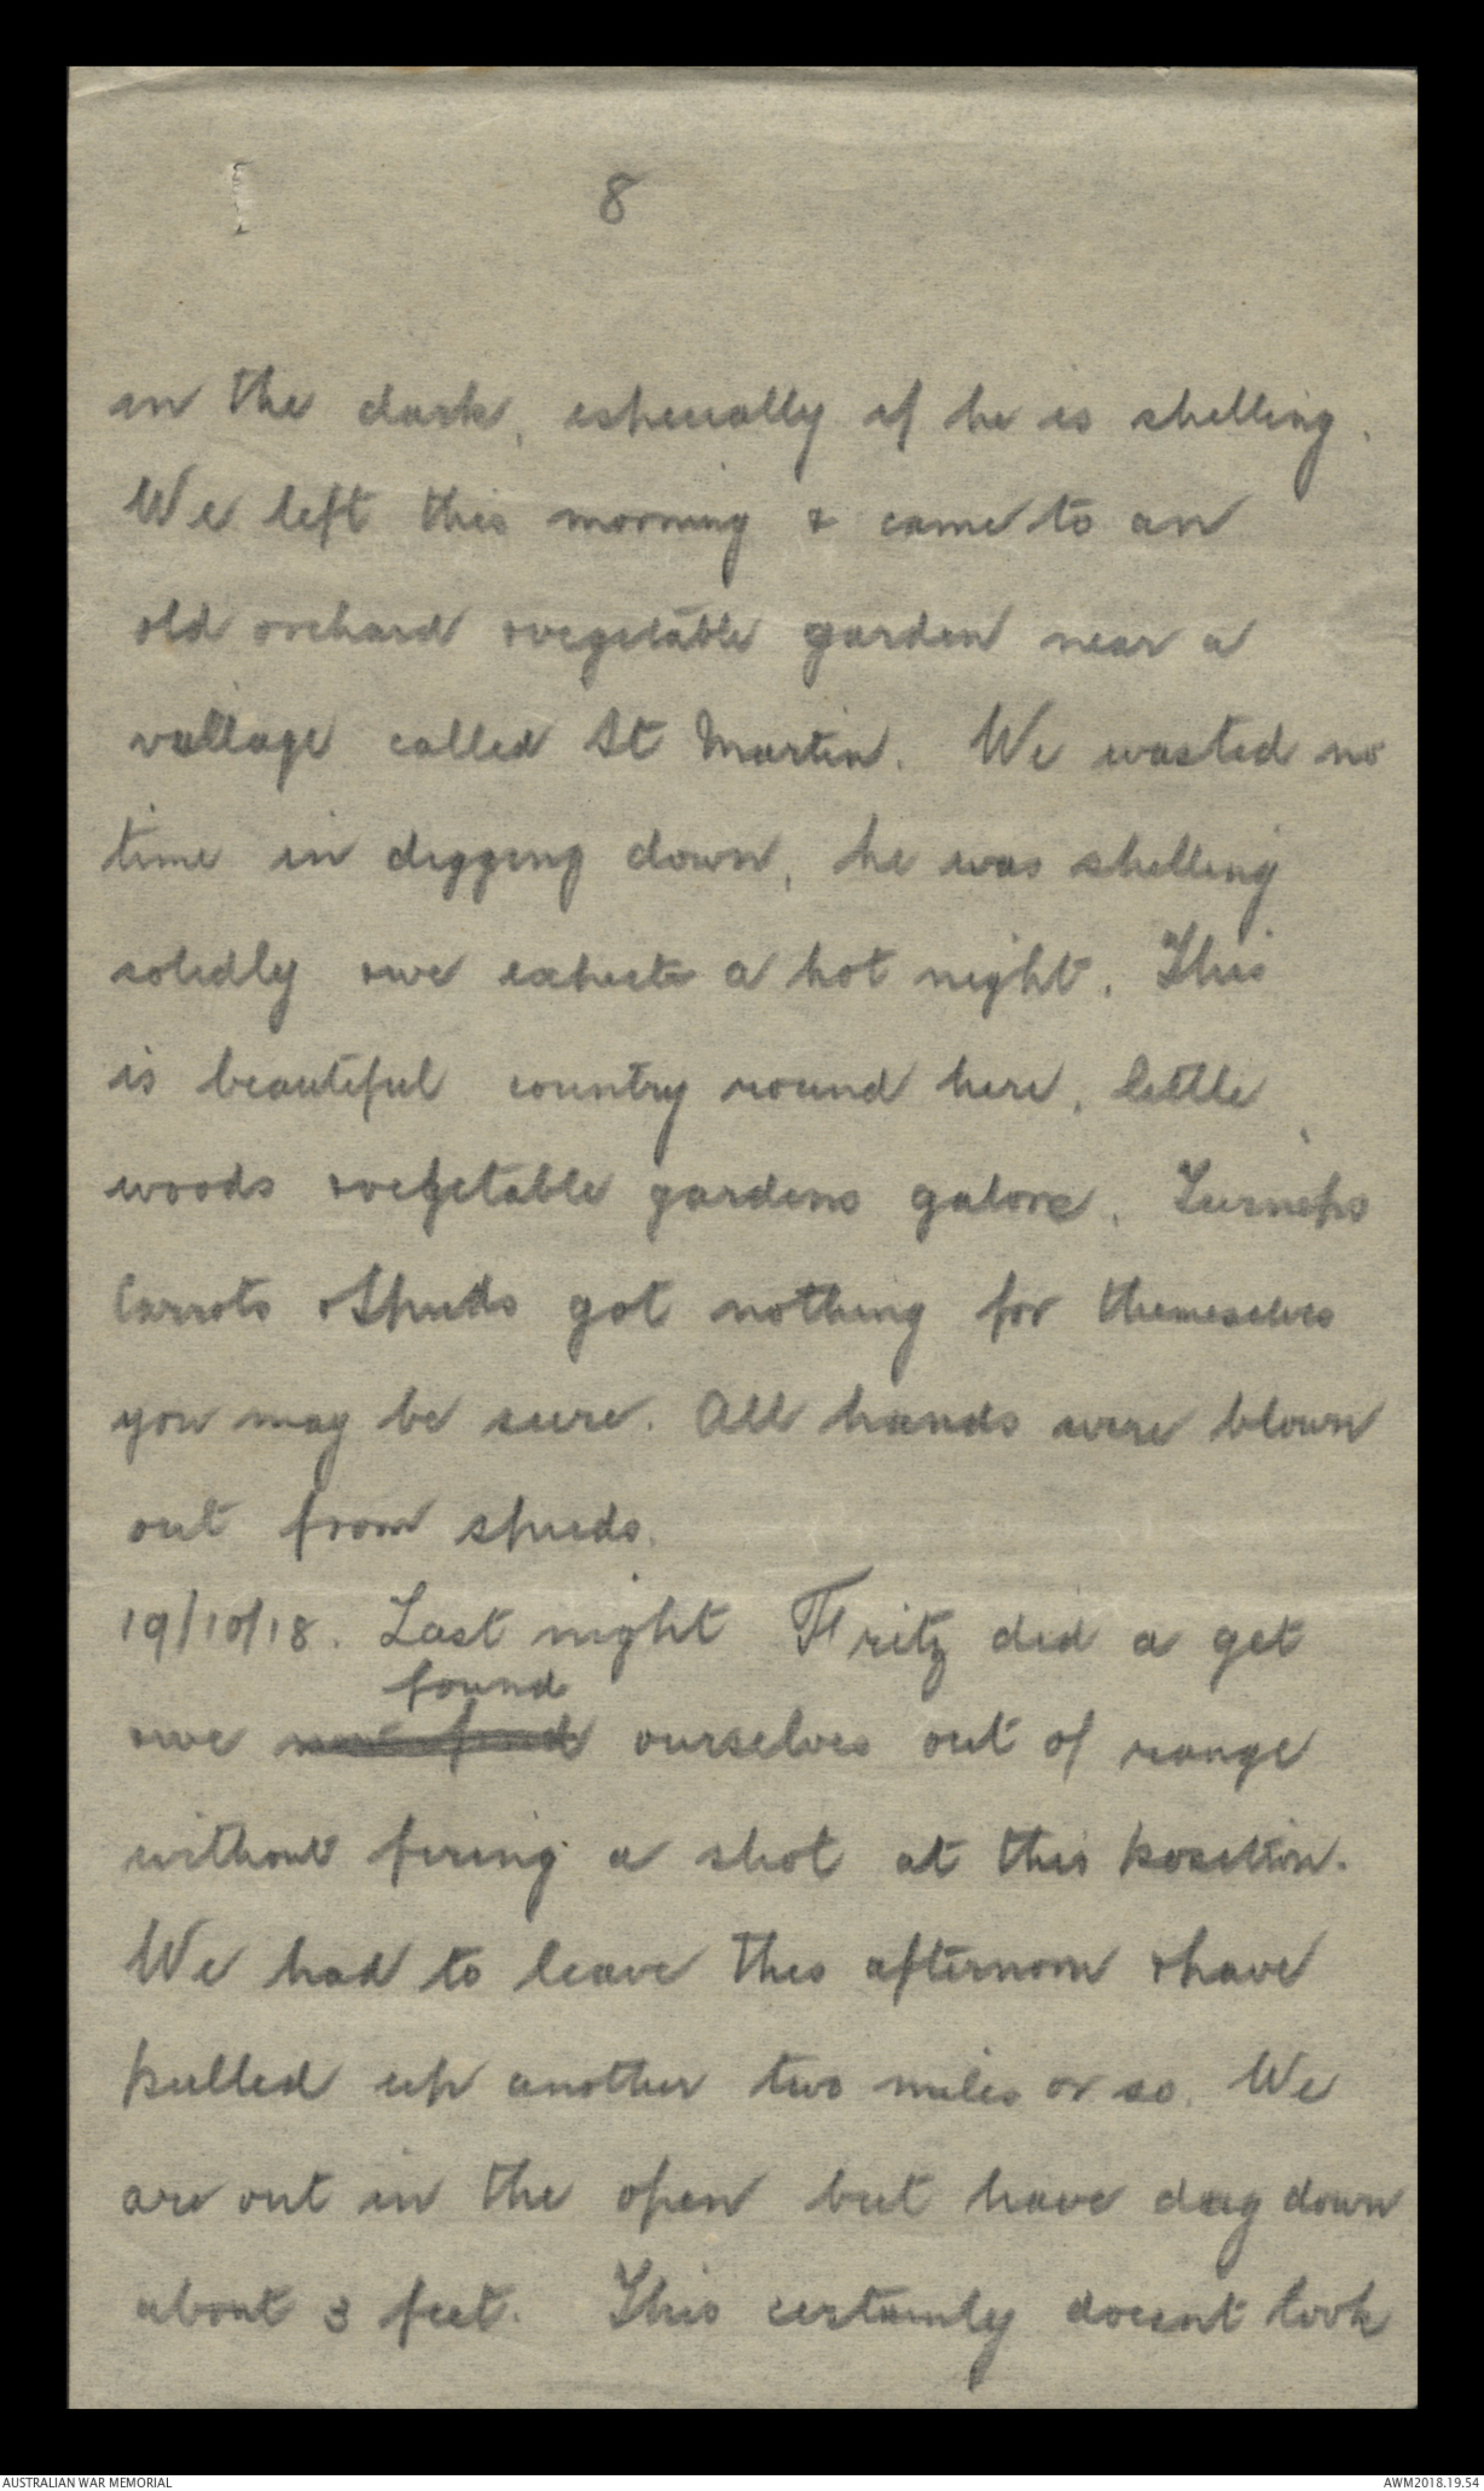 8
in the dark, especially if he is shelling.
We left this morning & came to an
old orchard & vegetable garden near a
village called St Martin. We wasted no
time in digging down, he was shelling
solidly & we expect a hot night. This
is beautiful country round here, little
woods & vegetable gardens galore. Turneps
Carrots & Spuds got nothing for themeselves
you may be sure. All hands were blown
out from spuds.
19/10/18. Last night Fritz did a get
found
& we ourselves out of range
without firing a shot at this position.
We had to leave this afternoon & have
pulled up another two miles or so. We
are out in the open but have dug down
about 3 feet. This certainly doesnt look
AUSTRALIAN WAR MEMORIAL
AWM2018.19.54